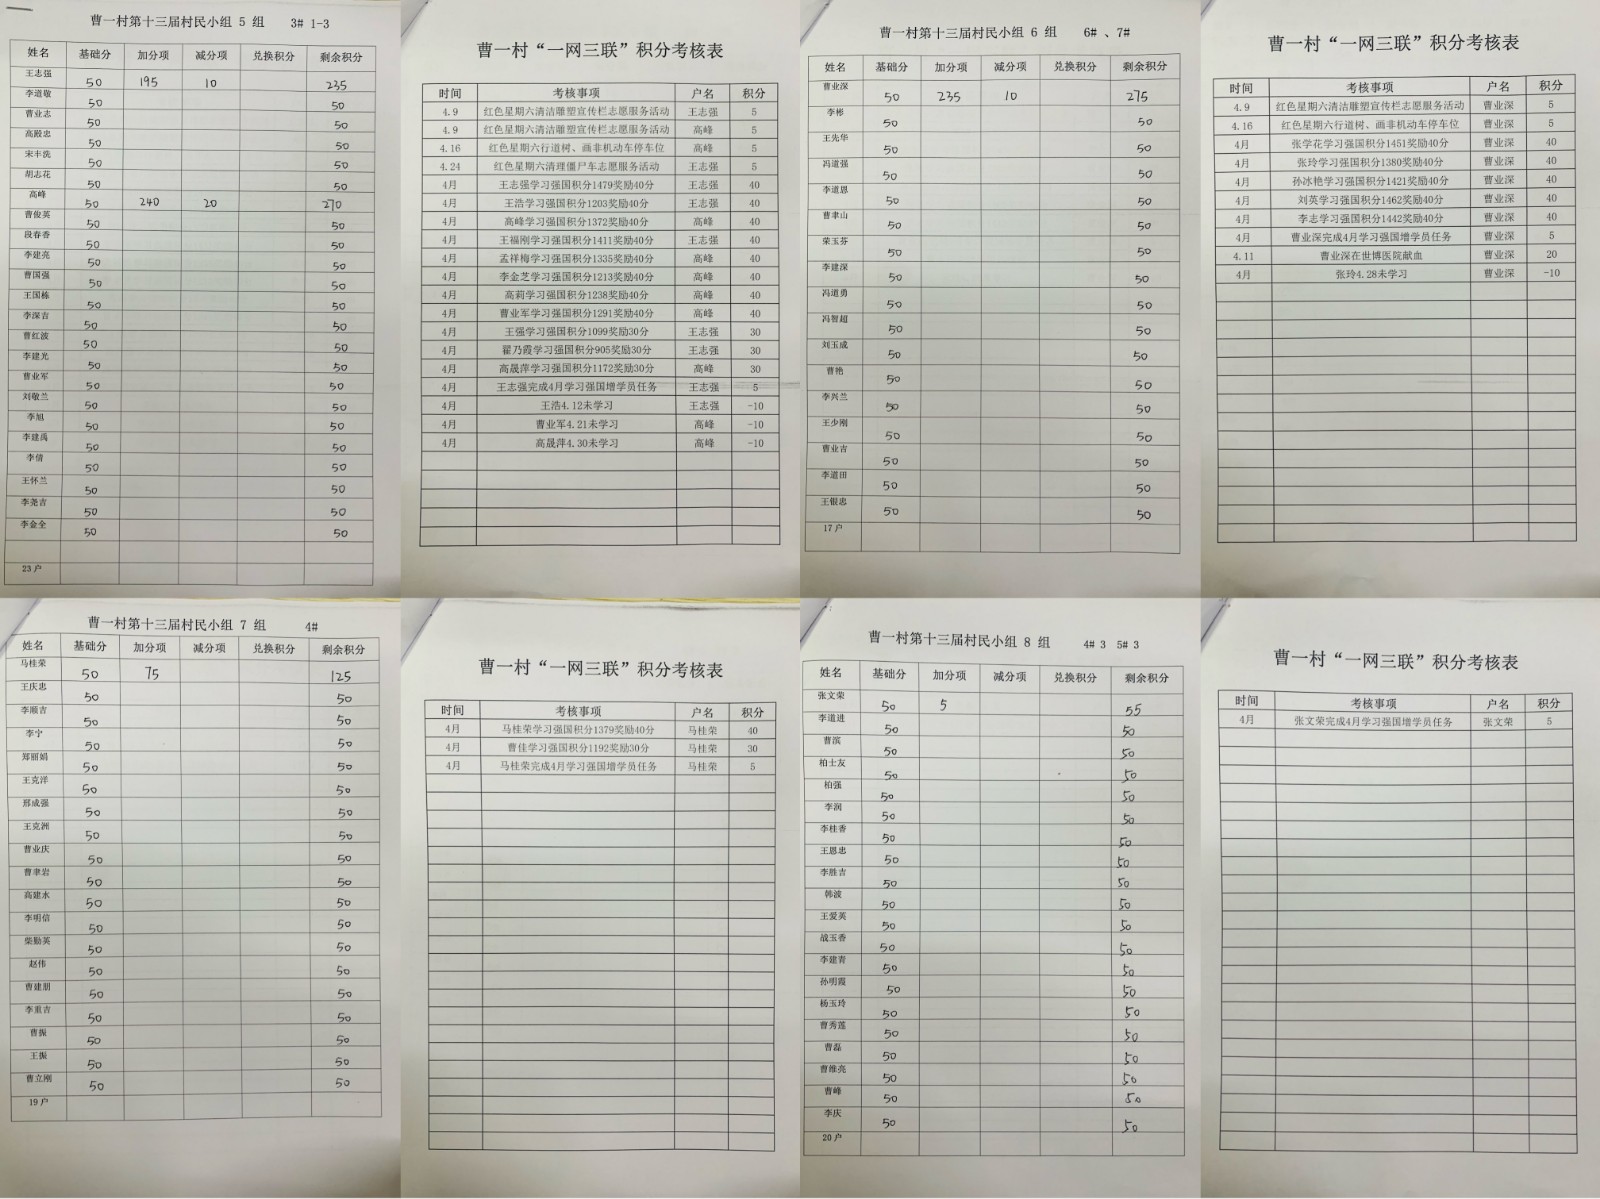 曹一村第十三届村民小组 5 组 3# 1-3
姓名 基础分 加分项 减分项 兑换积分 剩余积分
王志强 50 195 10 235
李道敬 50 50
曹业志 50 50
高殿忠 50 50
宋丰洗 50 50
胡志花 50 50
高峰 50 240 20 270
曹俊英 50 50
段春香 50 50
李建亮 50 50
曹国强 50 50
王国栋 50 50
李深吉 50 50
曹红波 50 50
李建光 50 50
曹业军 50 50
刘敬兰 50 50
李旭 50 50
李建禹 50 50
李倩 50 50
王怀兰 50 50
李尧吉 50 50
李金全 50 50
23 户
曹一村“一网三联”积分考核表
时间 考核事项 户名 积分
4.9 红色星期六清洁雕塑宣传栏志愿服务活动 王志强 5
4.9 红色星期六清洁雕塑宣传栏志愿服务活动 高峰 5
4.16 红色星期六行道树、画非机动车停车位 高峰 5
4.24 红色星期六清理僵尸车志愿服务活动 王志强 5
4月 王志强学习强国积分1479奖励40分 王志强 40
4月 王浩学习强国积分1203奖励40分 王志强 40
4月 高峰学习强国积分1372奖励40分 高峰 40
4月 王福刚学习强国积分1411奖励40分 王志强 40
4月 孟祥梅学习强国积分1335奖励40分 高峰 40
4月 李金芝学习强国积分1213奖励40分 高峰 40
4月 高莉学习强国积分1238奖励40分 高峰 40
4月 曹业军学习强国积分1291奖励40分 高峰 40
4月 王强学习强国积分1099奖励30分 王志强 30
4月 翟乃霞学习强国积分905奖励30分 王志强 30
4月 高晟萍学习强国积分1172奖励30分 高峰 30
4月 王志强完成4月学习强国增学员任务 王志强 5
4月 王浩4.12未学习 王志强 -10
4月 曹业军4.21未学习 高峰 -10
4月 高晟萍4.30未学习 高峰 -10
曹一村第十三届村民小组 6 组 6# 、7#
姓名 基础分 加分项 减分项 兑换积分 剩余积分
曹业深 50 235 10 275
李彬 50 50
王先华 50 50
冯道强 50 50
李道恩 50 50
曹聿山 50 50
荣玉芬 50 50
李建深 50 50
冯道勇 50 50
冯智超 50 50
刘玉成 50 50
曹艳 50 50
李兴兰 50 50
王少刚 50 50
曹业吉 50 50
李道田 50 50
王银忠 50 50
17 户
曹一村“一网三联”积分考核表
时间 考核事项 户名 积分
4.9 红色星期六清洁雕塑宣传栏志愿服务活动 曹业深 5
4.16 红色星期六行道树、画非机动车停车位 曹业深 5
4月 张学花学习强国积分1451奖励40分 曹业深 40
4月 张玲学习强国积分1380奖励40分 曹业深 40
4月 孙冰艳学习强国积分1421奖励40分 曹业深 40
4月 刘英学习强国积分1462奖励40分 曹业深 40
4月 李志学习强国积分1442奖励40分 曹业深 40
4月 曹业深完成4月学习强国增学员任务 曹业深 5
4.11 曹业深在世博医院献血 曹业深 20
4月 张玲4.28未学习 曹业深 -10
曹一村第十三届村民小组 7 组 4#
姓名 基础分 加分项 减分项 兑换积分 剩余积分
马桂荣 50 75 125
王庆忠 50 50
李顺吉 50 50
李宁 50 50
郑丽娟 50 50
王克洋 50 50
邢成强 50 50
王克洲 50 50
曹业庆 50 50
曹聿岩 50 50
高建永 50 50
李明信 50 50
柴勤英 50 50
赵伟 50 50
曹建朋 50 50
李重吉 50 50
曹振 50 50
王振 50 50
曹立刚 50 50
19 户
曹一村“一网三联”积分考核表
时间 考核事项 户名 积分
4月 马桂荣学习强国积分1379奖励40分 马桂荣 40
4月 曹佳学习强国积分1192奖励30分 马桂荣 30
4月 马桂荣完成4月学习强国增学员任务 马桂荣 5
曹一村第十三届村民小组 8 组 4# 3 5# 3
姓名 基础分 加分项 减分项 兑换积分 剩余积分
张文荣 50 5 55
李道进 50 50
曹滨 50 50
柏士友 50 50
柏强 50 50
李润 50 50
李桂香 50 50
王恩忠 50 50
李胜吉 50 50
韩波 50 50
王爱英 50 50
战玉香 50 50
李建青 50 50
孙明霞 50 50
杨玉玲 50 50
曹秀莲 50 50
曹磊 50 50
曹维亮 50 50
曹峰 50 50
李庆 50 50
20 户
曹一村“一网三联”积分考核表
时间 考核事项 户名 积分
4月 张文荣完成4月学习强国增学员任务 张文荣 5